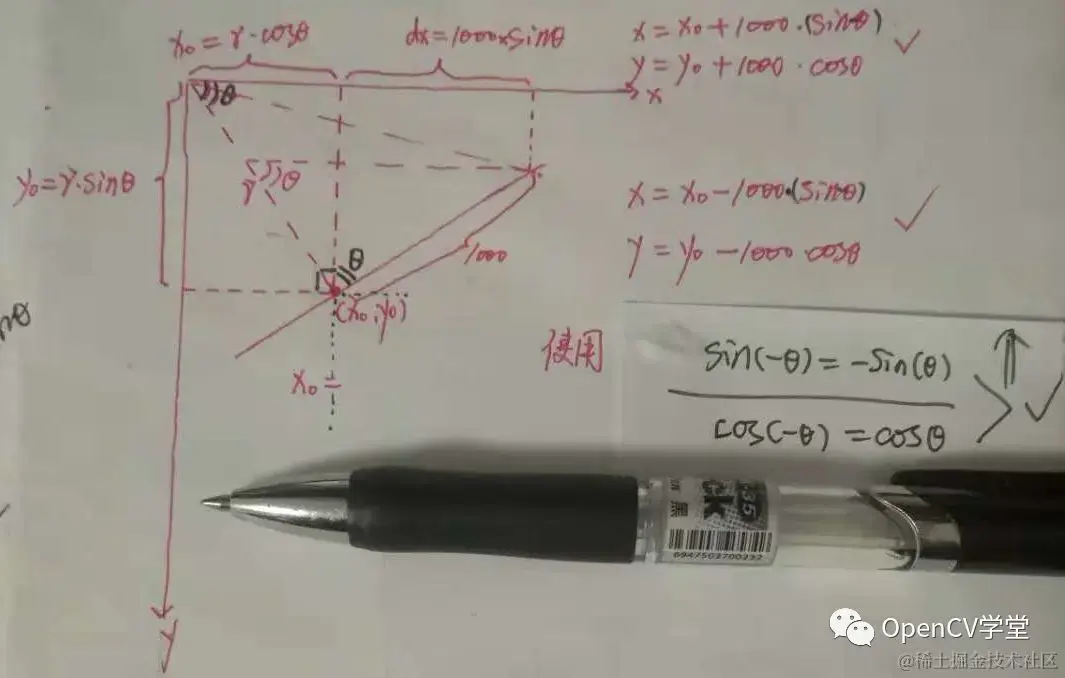 x₀=r·cosθ
dx=1000×sinθ
x=x₀+1000·(sinθ)
y=y₀+1000·cosθ
θ
x
y₀=r·sinθ
r
θ
x=x₀-1000·(sinθ)
y=y₀-1000·cosθ
θ
1000
(x₀,y₀)
使用
sin(-θ)=-sin(θ)
cos(-θ)=cosθ
x₀=
黑
6947503700232
y
OpenCV学堂
@稀土掘金技术社区